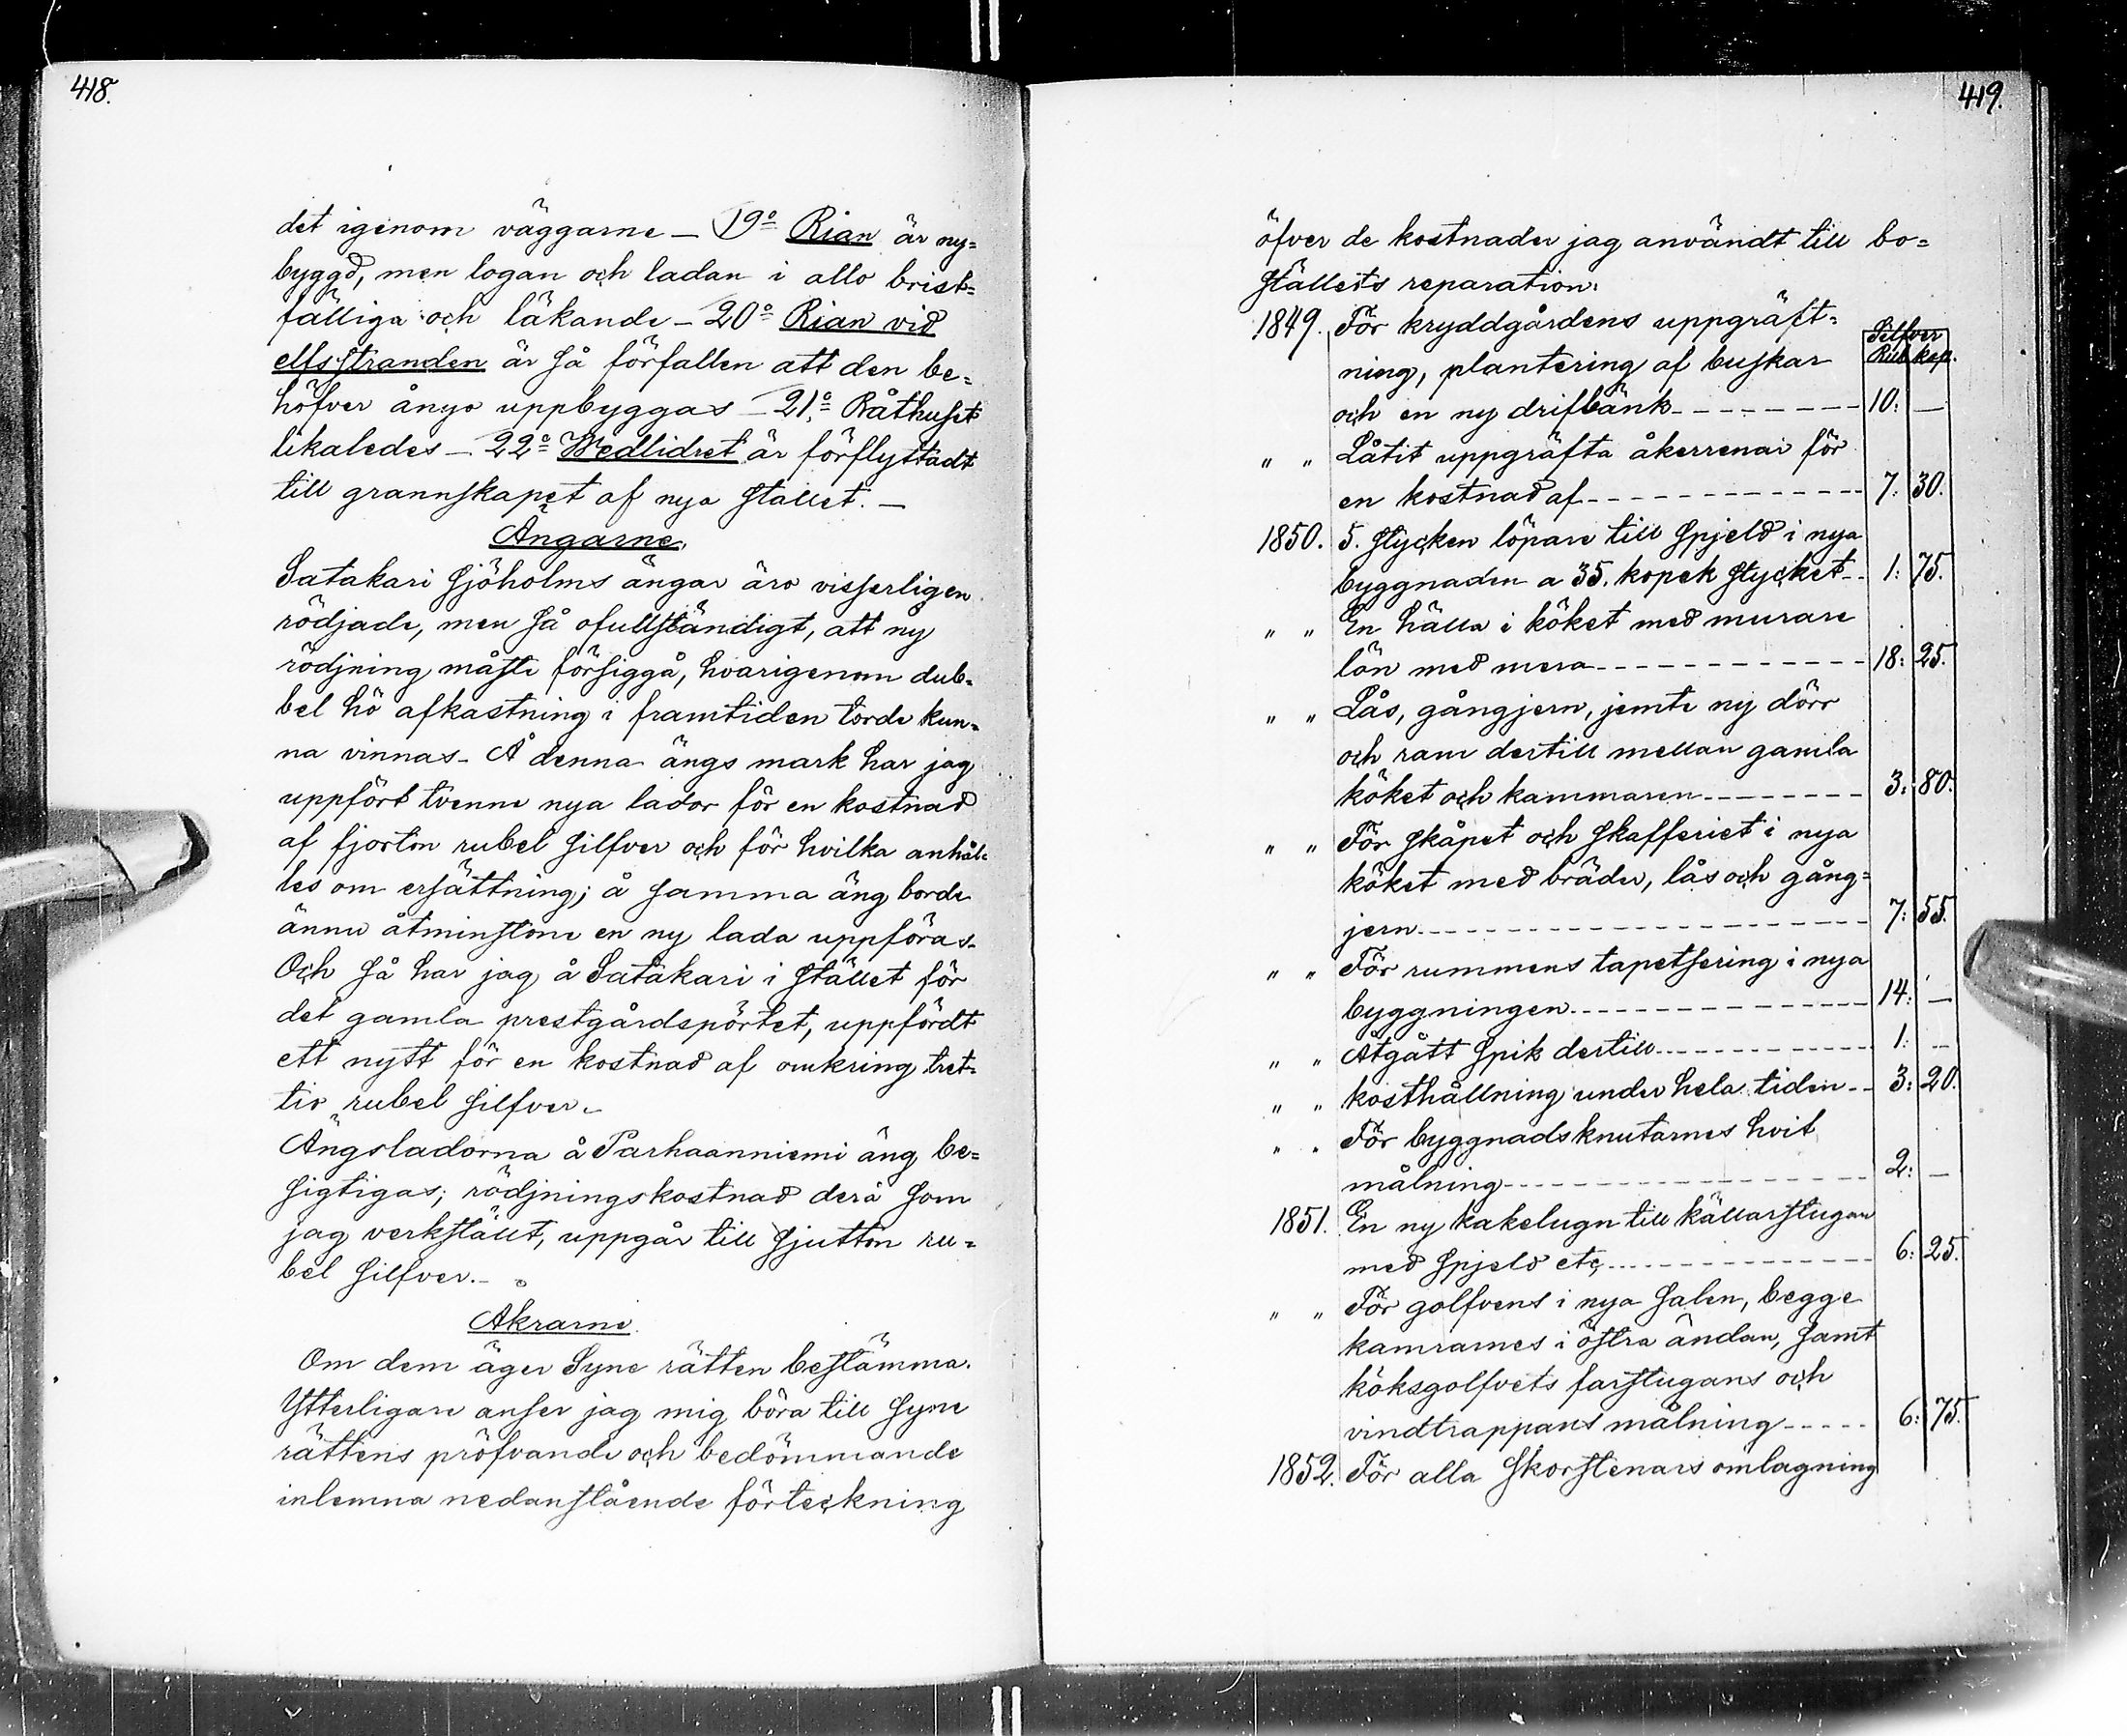 418.
det igenom väggarne — 19º Rian är ny=
byggd, men logan och ladan i allo brist=
fälliga och läkande — 20º Rian vid
elfsstranden är så förfallen att den be=
höfver ånyo uppbyggas — 21º Båthuset
likaledes — 22º Wedlidret är förflyttadt
till grannskapet af nya stallet. —
Ängarne.
Satakari sjöholms ängar äro visserligen
rödjade, men så ofullständigt, att ny
rödjning måste försiggå, hvarigenom dub=
bel hö afkastning i framtiden torde kun=
na vinnas — Å denna ängs mark har jag
uppfört tvenne nya lador för en kostnad
af fjorton rubel silfver och för hvilka anhål=
les om ersättning; å samma äng borde
ännu åtminstone en ny lada uppföras.
Och så har jag å Satakari i stället för
det gamla prestgårdspörtet, uppfördt
ett nytt för en kostnad af omkring tret=
tio rubel silfver.
Ängsladorna å Parhaanniemi äng be=
sigtigas; rödjningskostnad derå som
jag verkställt, uppgår till sjutton ru=
bel silfver. —
Åkrarne.
Om dem äger Syne rätten bestämma.
Ytterligare anser jag mig böra till syne
rättens pröfvande och bedömmande
inlemna nedanstående förteckning
419.
öfver de kostnader jag användt till bo=
ställets reparation:
Silfver
Rub kop.
1849. För kryddgårdens uppgräft=
ning, plantering af buskar
och en ny drifbänk - - - 10: —
" " Låtit uppgräfta åkerrenar för
en kostnad af - - - 7: 30.
1850. 5. stycken löpare till spjeld i nya
byggnaden a 35. kopek stycket - - 1: 75.
" " En hälla i köket med murare
lön med mera - - - 18: 25.
" " Lås, gångjern, jemte ny dörr
och ram dertill mellan gamla
köket och kammaren - - - 3: 80.
" " För skåpet och skafferiet i nya
köket med bräder, lås och gång=
jern - - - 7: 55.
" " För rummens tapetsering i nya
byggningen - - - 14: —
" " Åtgått spik dertill - - - 1: —
" " kosthållning under hela tiden - - 3: 20.
" " För byggnadsknutarnes hvit
målning - - - 2: —
1851. En ny kakelugn till källarstugan
med spjeld etc - - - 6: 25.
" " För golfvens i nya salen, begge
kamrarnes i östra ändan, samt
köksgolfvets farstugans och
vindtrappans målning - - - 6: 75.
1852. För alla skorstenars omlagning